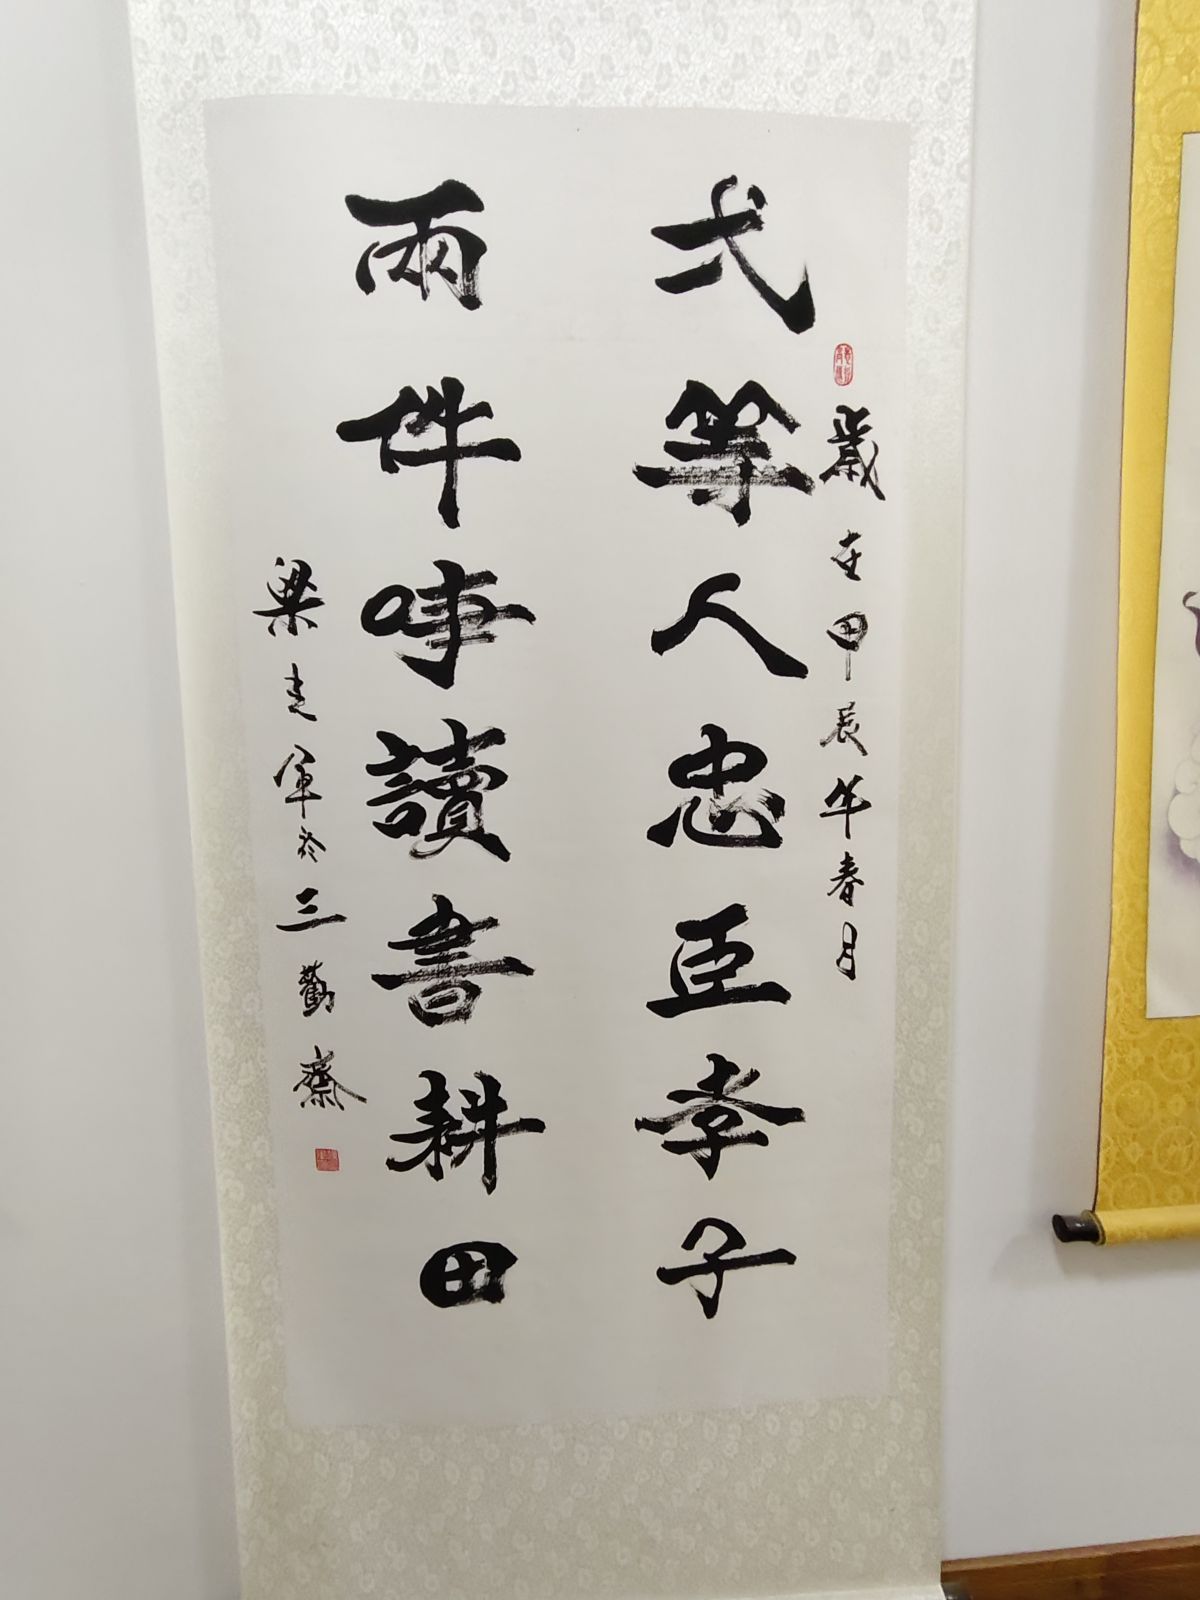 歲在甲辰年春月
弌等人忠臣孝子
兩件事讀書耕田
梁軍於三勸齋